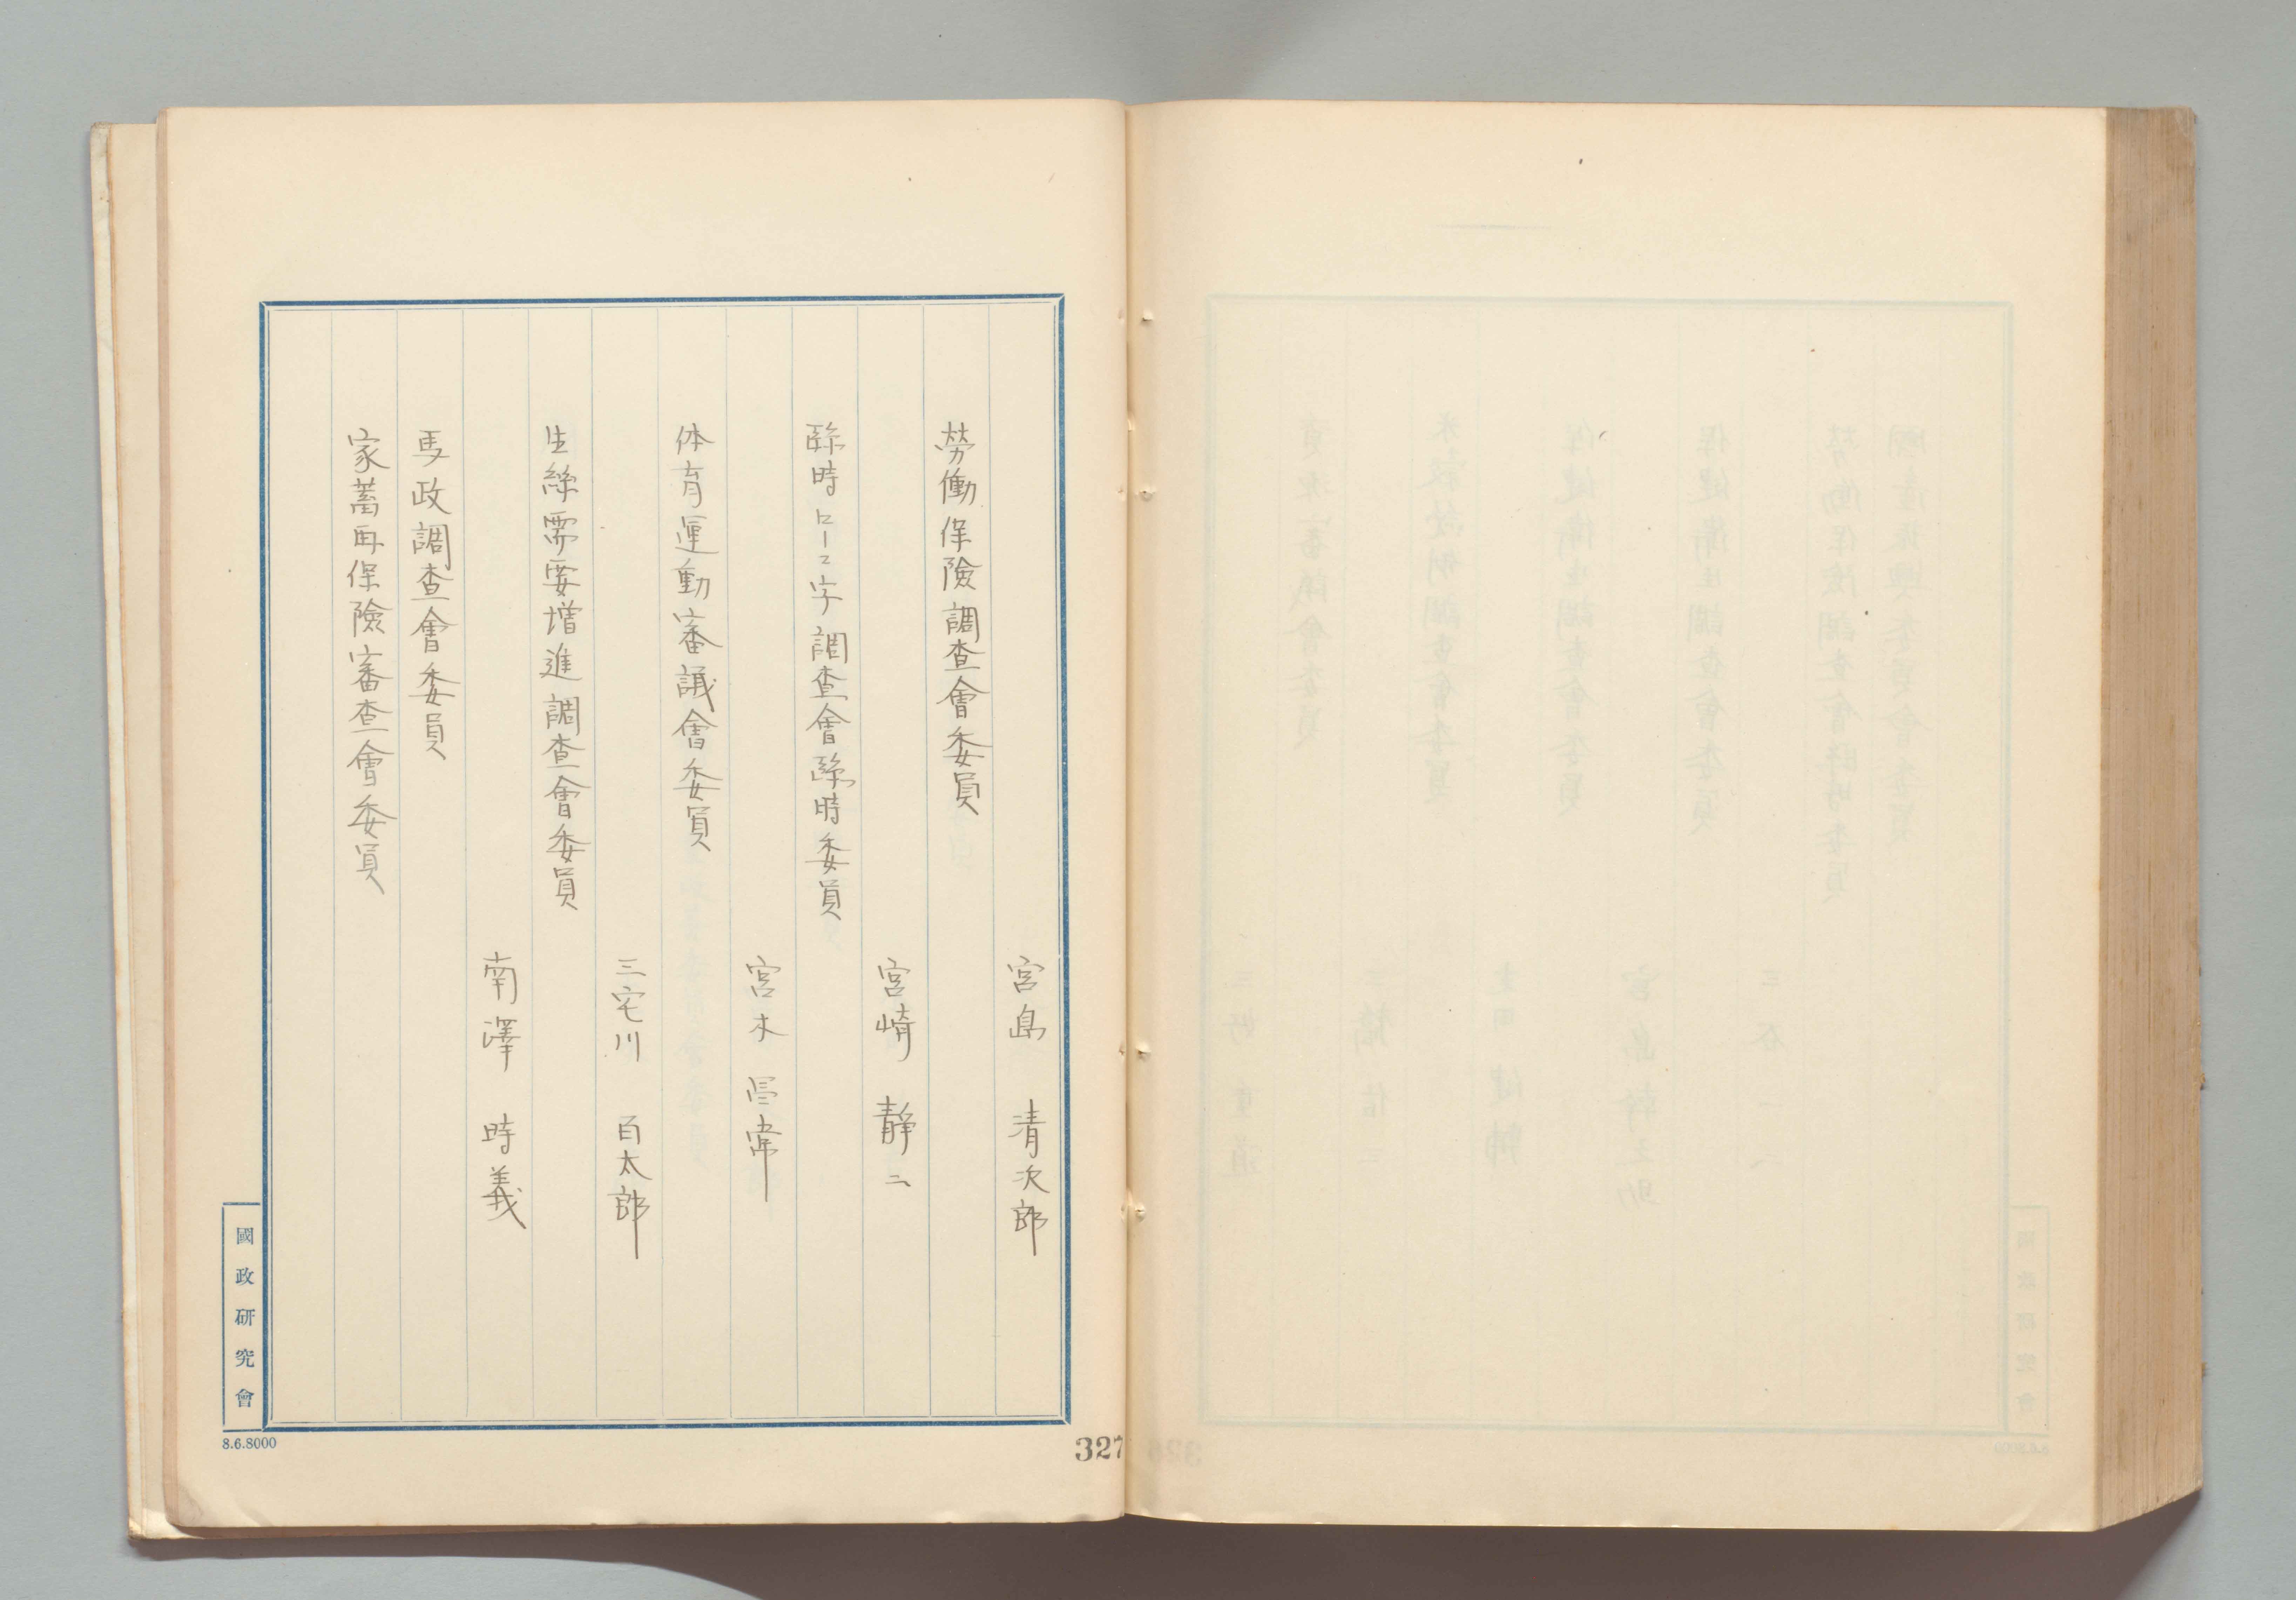 宮島 清次郎
勞働保險調查會委員
宮崎 靜二
臨時ローマ字調查會臨時委員
宮木
体育運動審議會委員
三宅川 百太郎
生絲需要增進調查會委員
南澤 時義
馬政調查會委員
家畜再保險審查會委員
國政研究會
8.6.8000
327